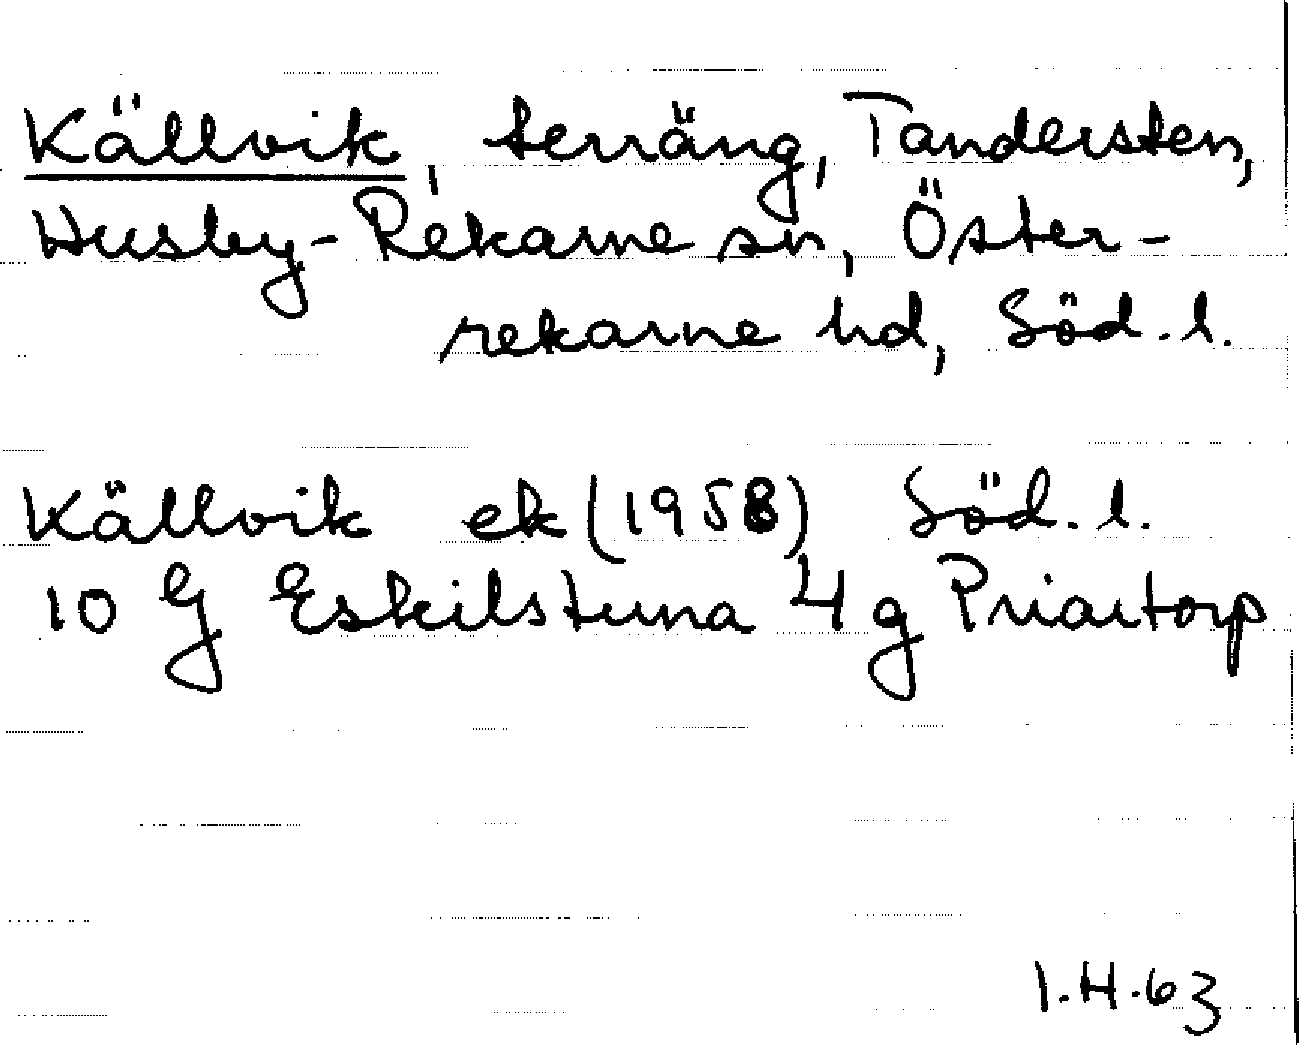 Källvik, terräng, Tandersten,
Husby-Rekarne sn, Öster-
rekarne hd, Söd. l.
Källvik ek (1958) Söd. l.
10 G Eskilstuna 4 g Priartorp
I.H.63